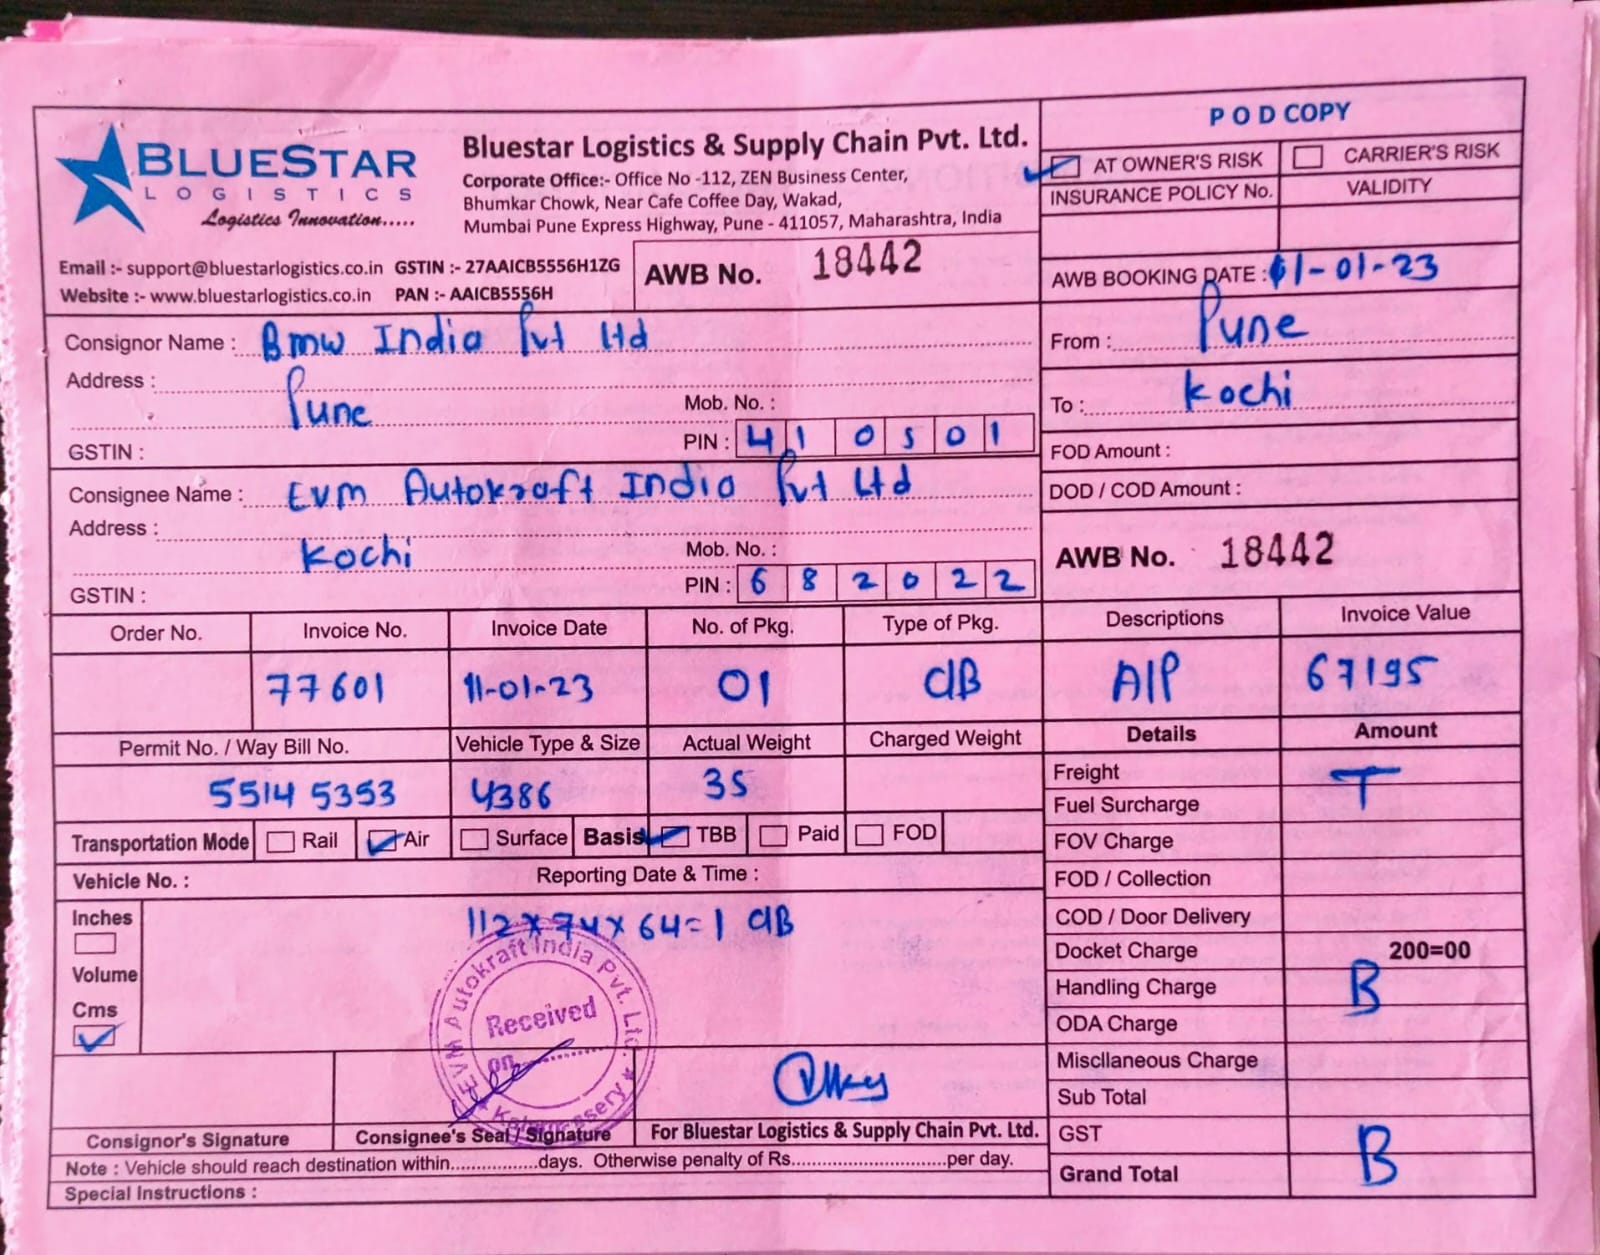 POD COPY
BLUESTAR
LOGISTICS
Logistics Innovation.....
Bluestar Logistics & Supply Chain Pvt. Ltd.
Corporate Office:- Office No -112, ZEN Business Center,
Bhumkar Chowk, Near Cafe Coffee Day, Wakad,
Mumbai Pune Express Highway, Pune - 411057, Maharashtra, India
AT OWNER'S RISK CARRIER'S RISK
INSURANCE POLICY No. VALIDITY
Email :- support@bluestarlogistics.co.in GSTIN :- 27AAICB5556H1ZG
Website :- www.bluestarlogistics.co.in PAN :- AAICB5556H
AWB No. 18442
AWB BOOKING DATE : 11-01-23
Consignor Name : Bmw India Pvt Ltd
Address :
Pune
Mob. No. :
GSTIN : PIN : 410501
From : Pune
To : Kochi
FOD Amount :
DOD / COD Amount :
Consignee Name : EVM Autokraft India Pvt Ltd
Address :
Kochi
Mob. No. :
GSTIN : PIN : 682022
AWB No. 18442
Order No. Invoice No. Invoice Date No. of Pkg. Type of Pkg. Descriptions Invoice Value
77601 11-01-23 01 C/B A/P 67195
Permit No. / Way Bill No. Vehicle Type & Size Actual Weight Charged Weight Details Amount
5514 5353 4386 35
Freight T
Fuel Surcharge
Transportation Mode Rail Air Surface Basis TBB Paid FOD
FOV Charge
Vehicle No. : Reporting Date & Time :
FOD / Collection
Inches
Volume
Cms
112 x 74 x 64 = 1 C/B
COD / Door Delivery
Docket Charge 200=00
Handling Charge B
ODA Charge
Miscllaneous Charge
Sub Total
GST
Grand Total B
EVM Autokraft India Pvt. Ltd.
Received
on
Consignor's Signature Consignee's Seal / Signature For Bluestar Logistics & Supply Chain Pvt. Ltd.
Note : Vehicle should reach destination within.................days. Otherwise penalty of Rs.............................per day.
Special Instructions :